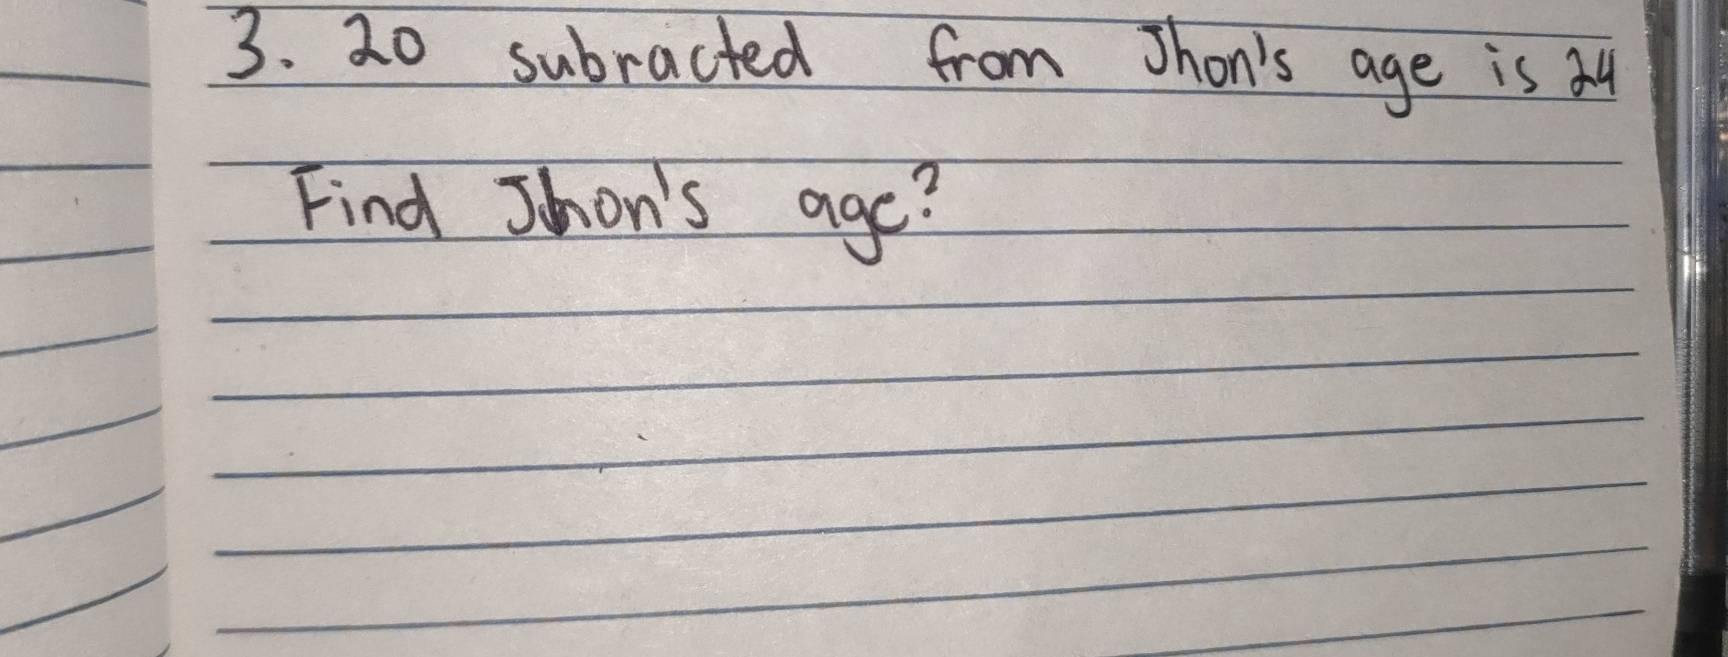 3. 20 subracted from Jhon's age is 24
Find Jhon's age?